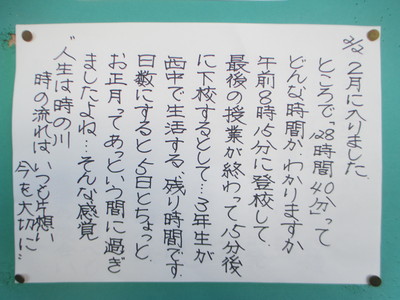 2/2 2月に入りました。
ところで、“128時間40分”って
どんな時間かわかりますか
午前8時15分に登校して、
最後の授業が終わって15分後
に下校するとして…3年生が
西中で生活する、残り時間です。
日数にすると5日とちょっと、
お正月ってあっという間に過ぎ
ましたよね…そんな感覚
“人生は時の川
時の流れは、いつも片想い
今を大切に…”